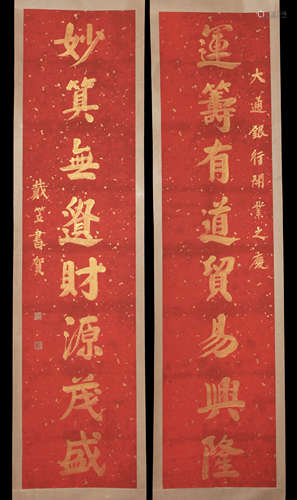 大通銀行開業之慶
運籌有道貿易興隆
妙算無邊財源茂盛
戴笠書賀